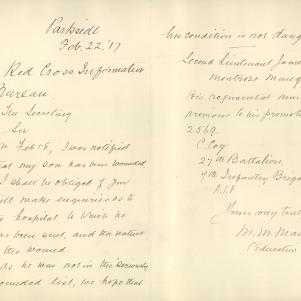 Parkside
Feb. 22. '17
Red Cross Information
Bureau.
The Secretary
Sir
on Feb 18, I was notified
that my son has been wounded
I shall be obliged if you
will make enquiries as to
the hospital to which he
has been sent, and the nature
of the wound
As he was not in the seriously
wounded list, we hope that
his condition is not dang
Second Lieutenant James
Montrose
His regimental num
previous to his promot
2569.
C Coy
27th Battalion
7th Infantry Brigad
A.I.F
Yours very tru
M. M.